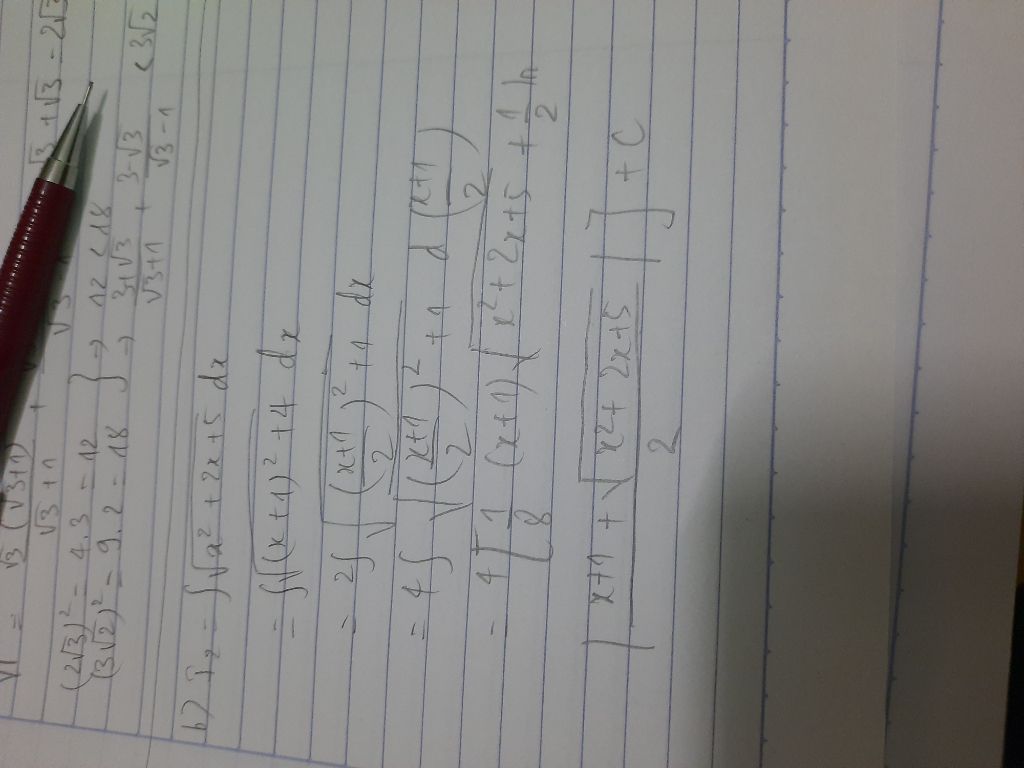 VT = √3(√3+1)/√3+1 +
√3+√3 - 2√3
(2√3)² = 4.3 = 12
(3√2)² = 9.2 = 18 } → 12 < 18
→ 3+√3/√3+1 + 3-√3/√3-1 < 3√2
b) I₂ = ∫√x² + 2x + 5 dx
= ∫√(x+1)² + 4 dx
= 2∫√(x+1/2)² + 1 dx
= 4∫√(x+1/2)² + 1 d(x+1/2)
= 4[1/8 (x+1)√x² + 2x + 5 + 1/2 ln
|x+1 + √x² + 2x + 5/2|] + C